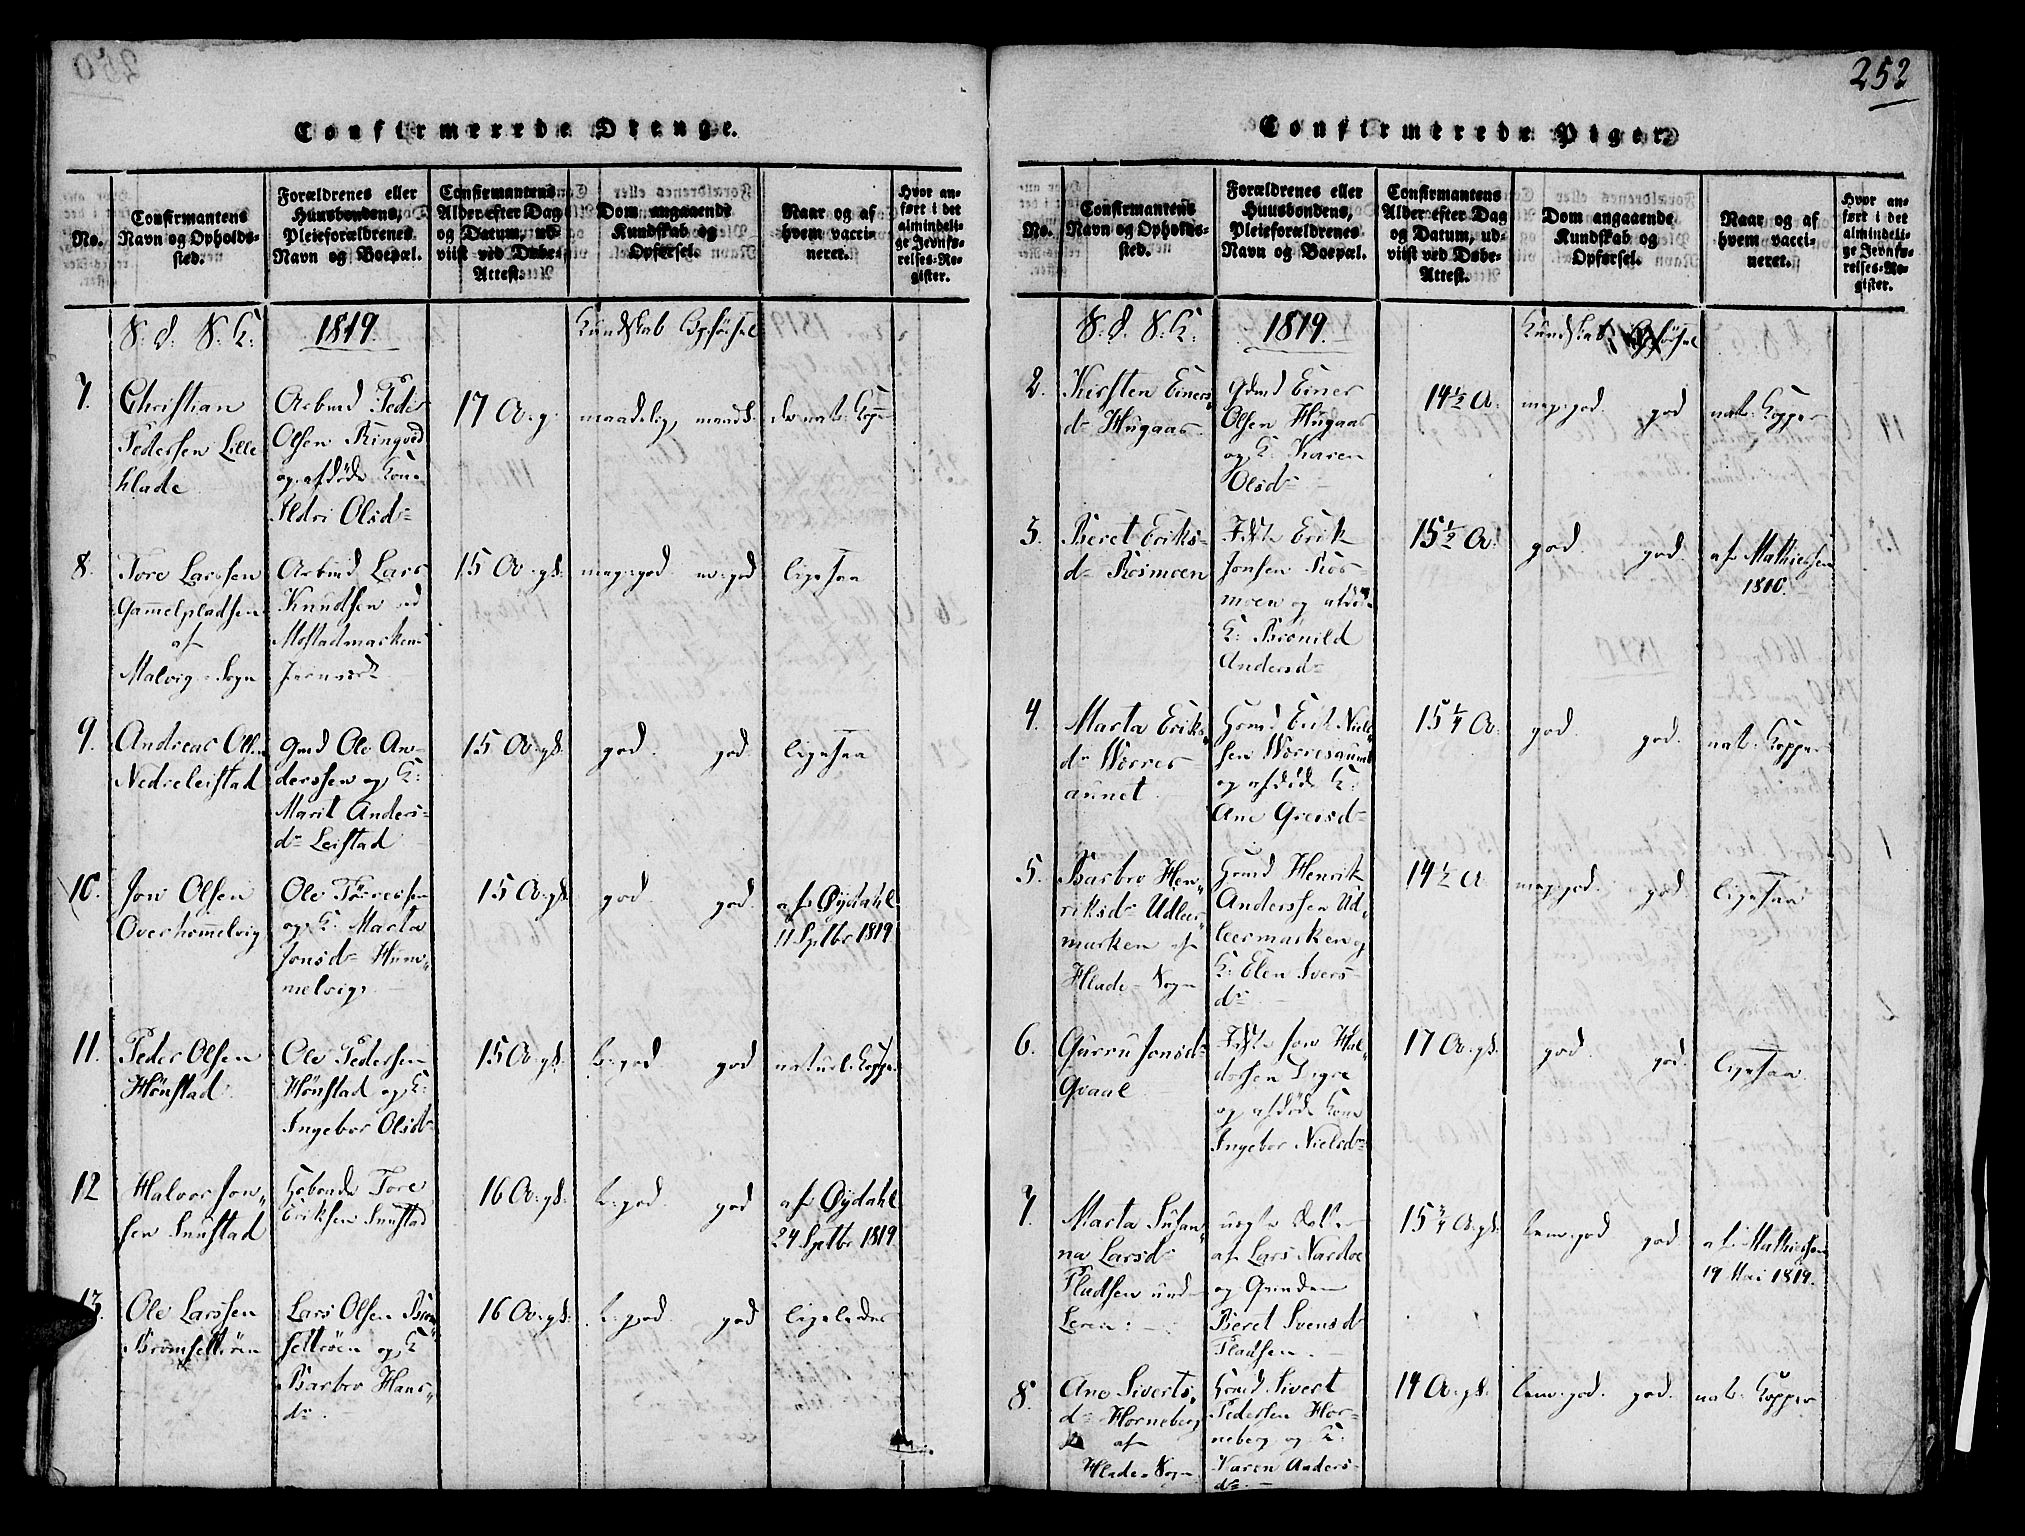 252
Confirmerede Drenge.
No.
Confirmantens
Navn og Opholds-
sted.
Forældrenes eller
Huusbondens,
Pleieforældrenes
Navn og Boepæl.
Confirmantens
Alder efter Dag
og Datum, ud-
viist ved Døbe-
Attest.
Dom angaaende
Kundskab og
Opførsel.
Naar og af
hvem vacci-
neret.
Hvor an-
ført i det
almindeli-
ge Jevnfø-
relses-Re-
gister.
S. d. S. K: 1819. Kundskab Opførsel
7.
Christian
Pedersen Lille
hlade
Arbmd Peder
Olsen Ringved
og afdøde Kone
Ildri Olsd
17 A. g.
maadelig,
do nat: Kop
8.
Tore Larssen
Gammelpladsen
af
Malvig-Sogn
Arbmd Lars
Knudsen ved
Mostadmarkens
Jernverk
15 A. gl.
meg:god
m:god
ligesaa
9.
Andreas Olsen
Nedreleistad
gmd Ole An-
derssen og K:
Marit Anders-
d Leistad
15 A. gl.
god.
god.
ligesaa
10.
Jon Olsen
Overhommelvig
Ole Torressen
og K: Marta
Jonsd Hum-
melvig
15 A. gl.
god
god.
af Øydahl
11 Septbr 1819
11.
Peder Olsen
Hønstad
Ole Pedersen
Hønstad og K:
Ingebor Olsd
15 A. gl.
b:god
god
naturl:Kopper
12
Halvor Jon-
sen Snustad
Gbonde Tore
Eriksen Snustad
16 A. gl.
b:god
god
af Øydahl
24 Septbr 1819
13.
Ole Larssen
Bromsetterøen
Lars Olsen Brom
settrøen og K
Barbro Hans-
d
16 A. gl.
b:god
god
ligeledes
Confirmerede Piger.
No.
Confirmantens
Navn og Opholds-
sted.
Forældrenes eller
Huusbondens,
Pleieforældrenes
Navn og Boepæl.
Confirmantens
Alder efter Dag
og Datum, ud-
viist ved Døbe-
Attest.
Dom angaaende
Kundskab og
Opførsel.
Naar og af
hvem vacci-
neret.
Hvor an-
ført i det
almindeli-
ge Jevnfø-
relses-Re-
gister.
S. d. S. K. 1819. Kundskab Opførsel
2.
Kirsten Einers
d Hugaas
gdmd Einer
Olsen Hugaas
og K. Karen
Olsd
14½ A.
meg:god.
god
nat: Kopper
3.
Beret Eriks-
d Rosmoen
Erik
Jonsen Ros-
moen og afdøde
K: Brønild
Andersd
15½ A.
god.
god.
af Mathiesen
1810.
4.
Marta Eriks
d Worres
aunet
Gmd Erik Niel-
sen Worresaunet
og afdøde K:
Ane Greisd
15¼ A.
god.
god.
nat: Kopper
5.
Barbro Hen-
riksd Udleer
marken af
Hlade-Sogn
Gmd Henrik
Anderssen Ud-
leermarken og
K: Elen Ivers-
d
14½ A
meg:god.
god.
ligesaa
6.
Gurru Jonsd
Qvaal
Jon Hal-
dorsen Digre
og afdøde Kone
Ingebor Nielsd
17 A. gl.
god.
god.
ligesaa.
7.
Marta Susan-
na Larsd
Pladsen und
Leren:
uægte Datter
af Lars Nardoe
og Qvinden
Beret Svensd
Pladsen.
15¾ A. gl.
tem:god
god
af Mathiesen
19 Mai 1819.
8.
Ane Siverts-
d Horneberg
af
Hlade-Sogn
Gmd Sivert
Pedersen Hor-
neberg og K:
Karen Anders-
d
14 A. gl.
tem:god.
god.
nat: Kopper